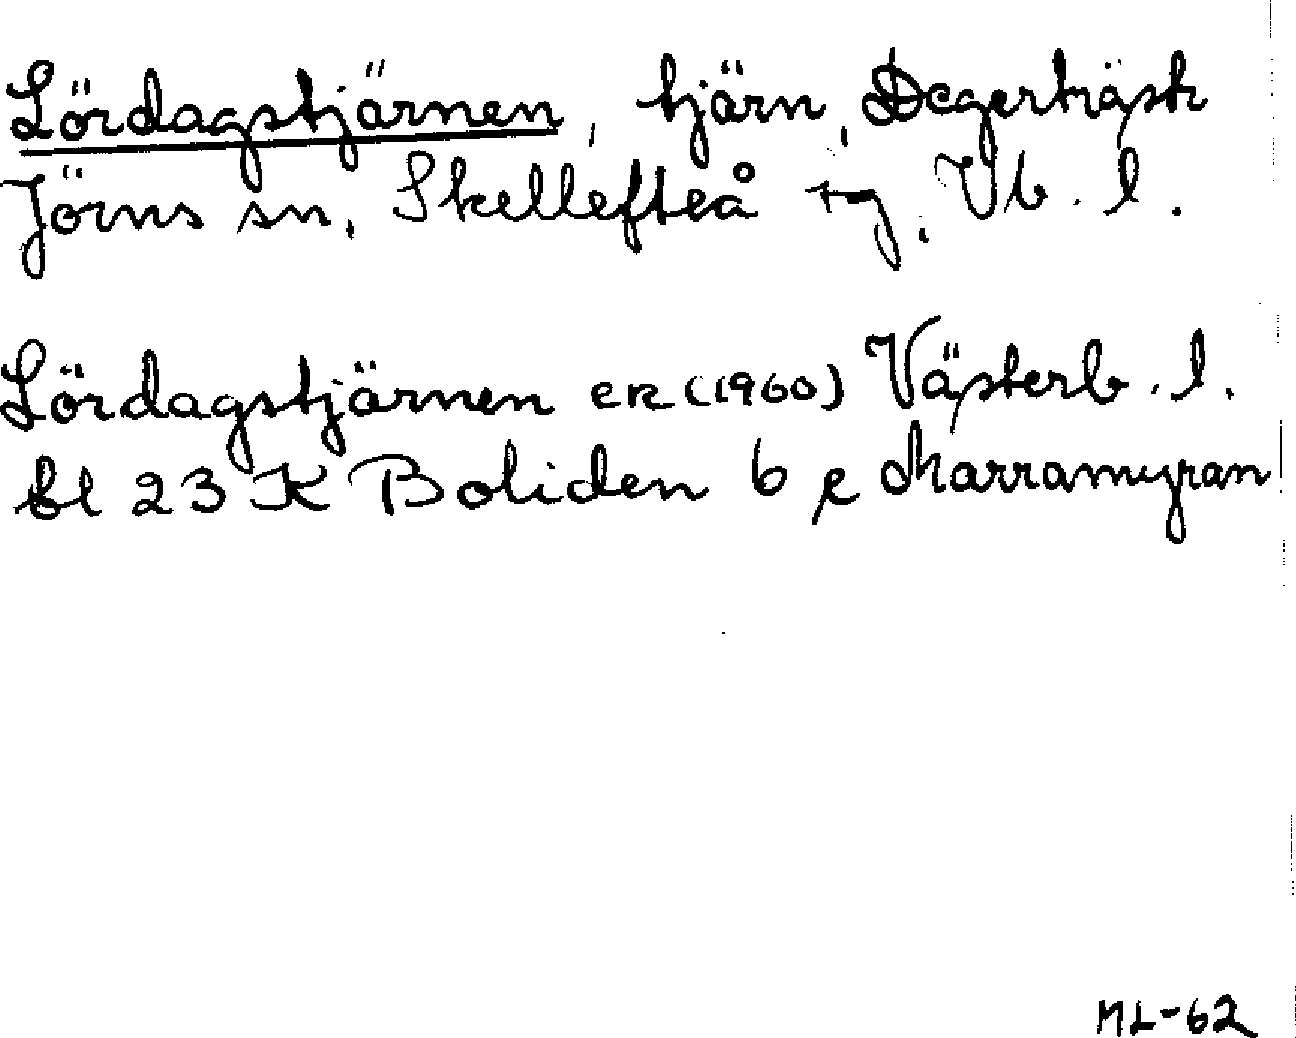 Lördagstjärnen, tjärn, Degerträsk
Jörns sn, Skellefteå tg, Vb. l.
Lördagstjärnen ek (1960) Västerb. l.
bl 23 K Boliden 6 e Marramyran
ML-62